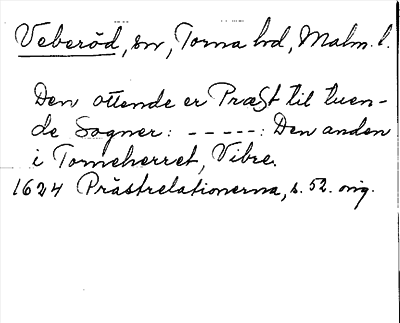 Veberöd, sn, Torna hd, Malm. l.
Den ottende er Præst til tuen-
de Sogner: -----: Den anden
i Torneherret, Vibre.
1624 Prästrelationerna, s. 52. orig.